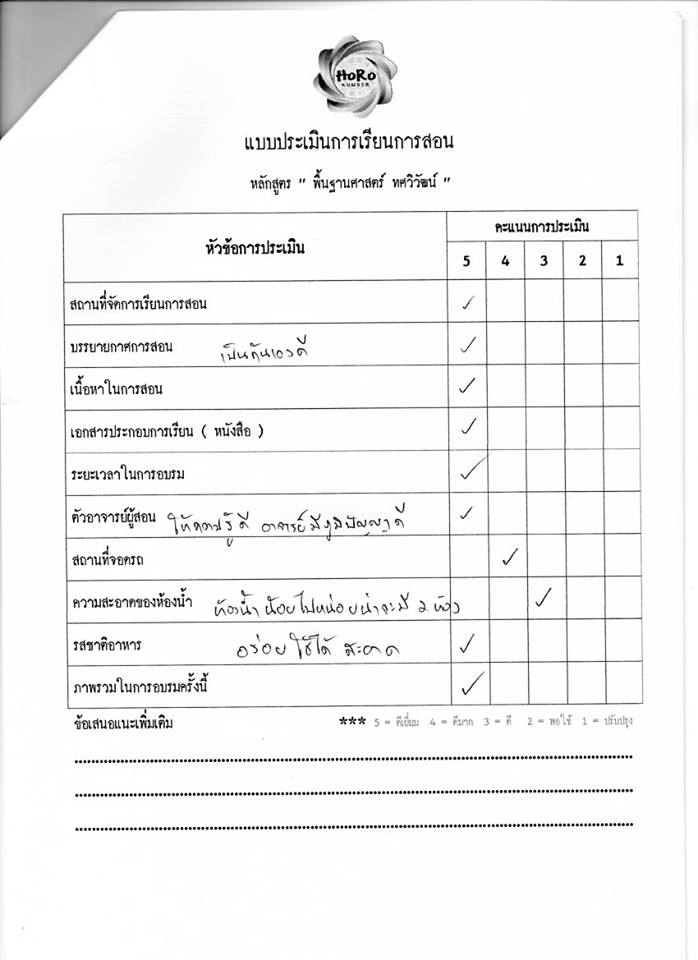 HoRo
NUMBER
แบบประเมินการเรียนการสอน
หลักสูตร " พื้นฐานศาสตร์ ทศวิวัฒน์ "
หัวข้อการประเมิน
คะแนนการประเมิน
5 4 3 2 1
สถานที่จัดการเรียนการสอน ✓
บรรยายกาศการสอน เป็นกันเองดี ✓
เนื้อหาในการสอน ✓
เอกสารประกอบการเรียน ( หนังสือ ) ✓
ระยะเวลาในการอบรม ✓
ตัวอาจารย์ผู้สอน ให้ความรู้ดี อาจารย์มีภูมิปัญญาดี ✓
สถานที่จอดรถ ✓
ความสะอาดของห้องน้ำ ห้องน้ำน้อยไปหน่อยน่าจะมี 2 ห้อง ✓
รสชาติอาหาร อร่อย ใช้ได้ สะอาด ✓
ภาพรวมในการอบรมครั้งนี้ ✓
ข้อเสนอแนะเพิ่มเติม *** 5 = ดีเยี่ยม 4 = ดีมาก 3 = ดี 2 = พอใช้ 1 = ปรับปรุง